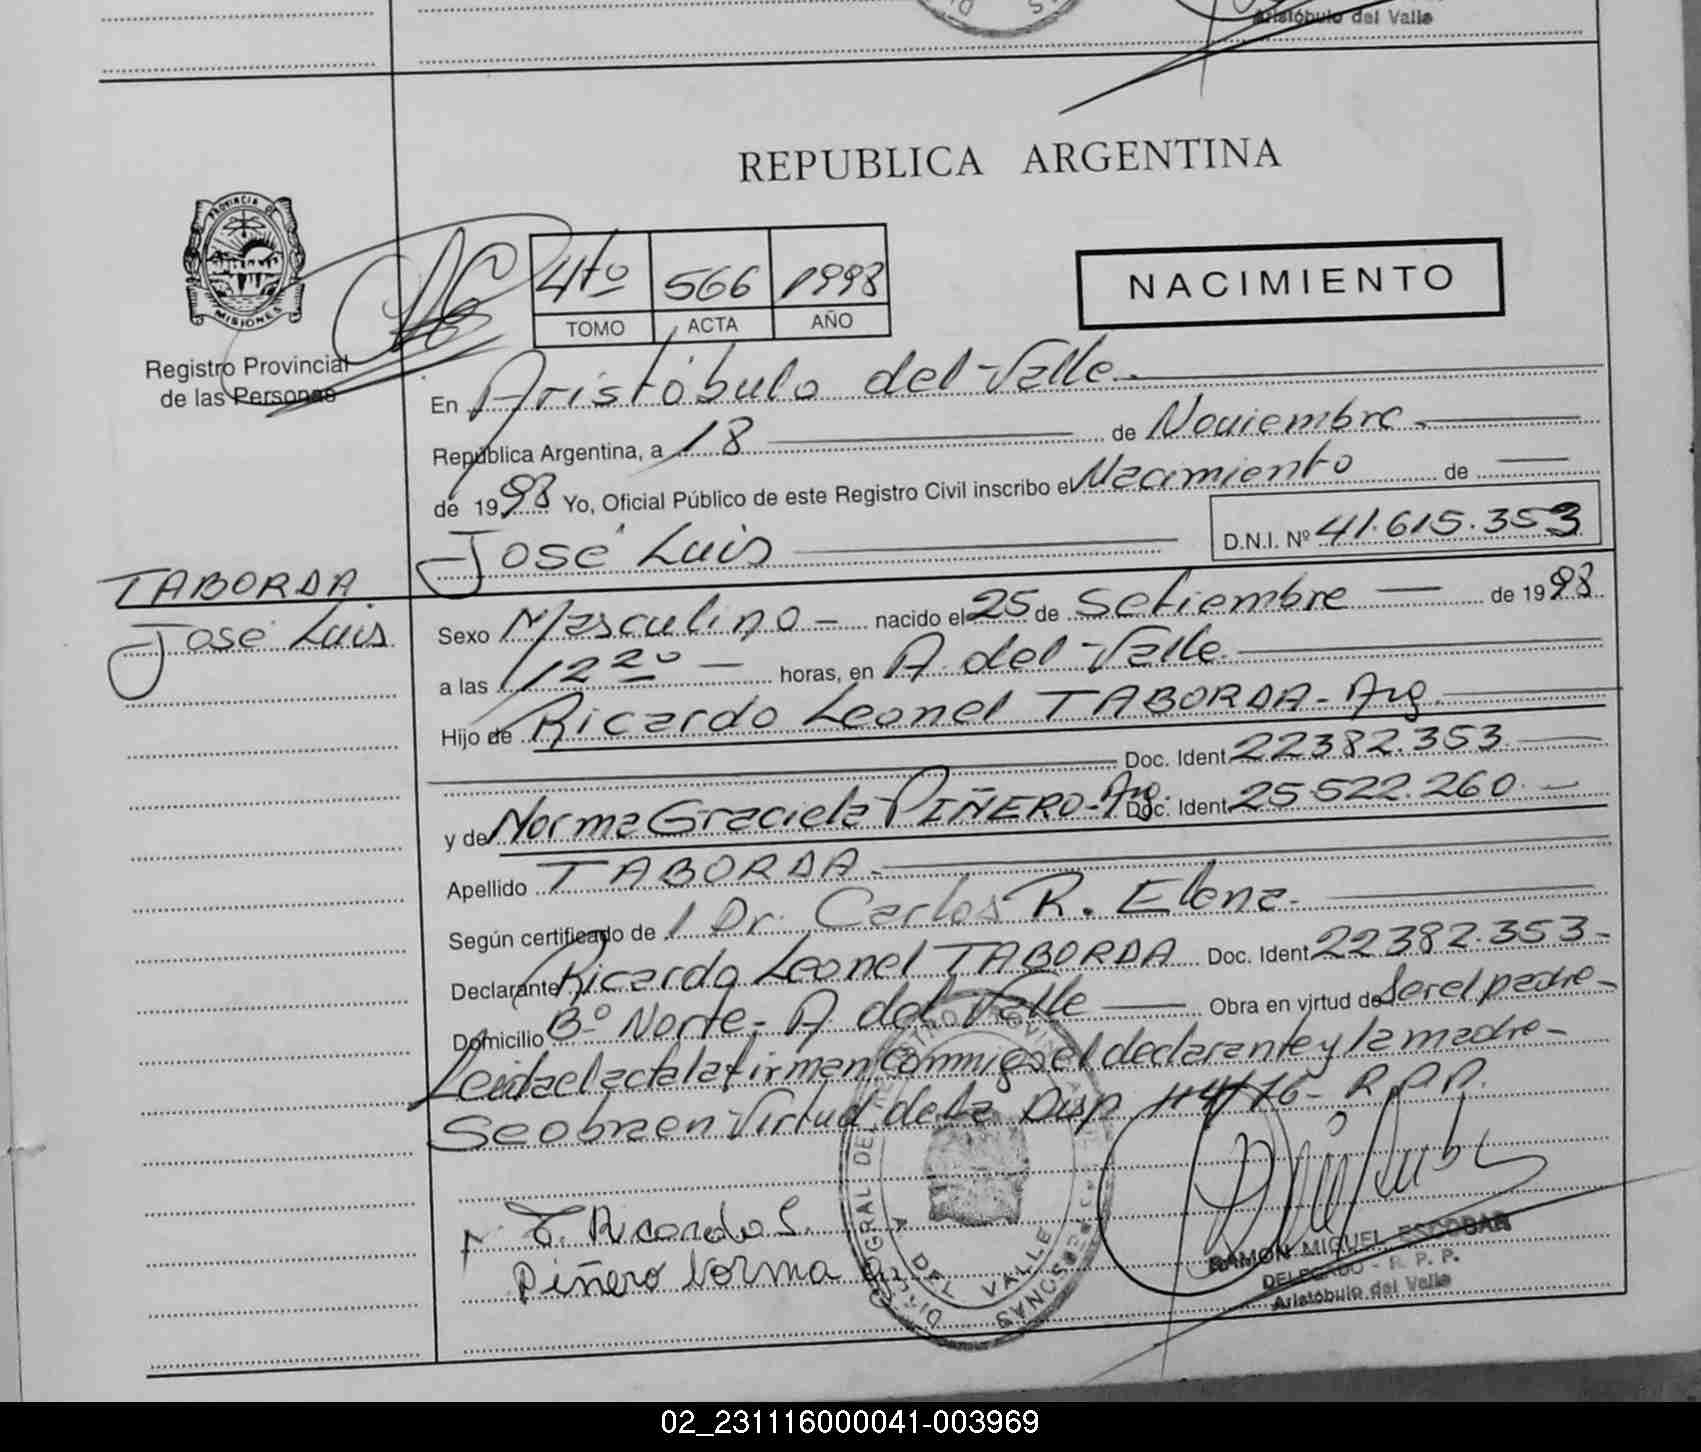 Aristóbulo del Valle
REPUBLICA ARGENTINA
PROVINCIA DE
MISIONES
Registro Provincial
de las Personas
4to 566 1998
TOMO ACTA AÑO
NACIMIENTO
En Aristóbulo del Valle.
República Argentina, a 18 de Noviembre
de 1998 Yo, Oficial Público de este Registro Civil inscribo el Nacimiento de
José Luis D.N.I. Nº 41.615.353
TABORDA
José Luis
Sexo Masculino nacido el 25 de Setiembre de 1998
a las 12 20 horas, en A. del Valle.
Hijo de Ricardo Leonel TABORDA - Arg.
Doc. Ident 22382.353
y de Norma Graciela PIÑERO - Arg. Doc. Ident 25522.260
Apellido TABORDA
Según certificado de 1 Dr. Carlos R. Elena
Declarante Ricardo Leonel TABORDA Doc. Ident 22382.353
Domicilio Bº Norte - A del Valle Obra en virtud de Ser el padre
Leida el acta la firman conmigo el declarante y la madre
Se obra en Virtud de la Disp 114/76 - R.P.P.
T. Ricardo L.
Piñero Norma
A DEL VALLE
RAMON MIGUEL ESCOBAR
DELEGADO - R. P. P.
Aristóbulo del Valle
02_231116000041-003969